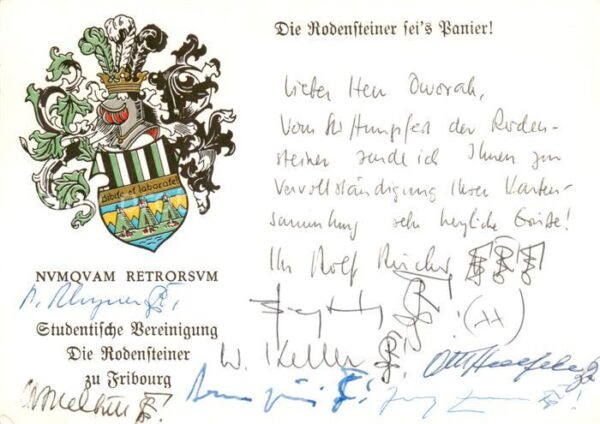 Die Rodensteiner sei's Panier!
Lieber Herr Dworak,
Vom Stiftungsfest der Roden-
steiner sende ich Ihnen zur
Vervollständigung Ihrer Karten-
sammlung sehr herzliche Grüße!
Ihr Rolf
bibite et laborate!
NVMQVAM RETRORSVM
Studentische Vereinigung
Die Rodensteiner
zu Fribourg
W. Keller